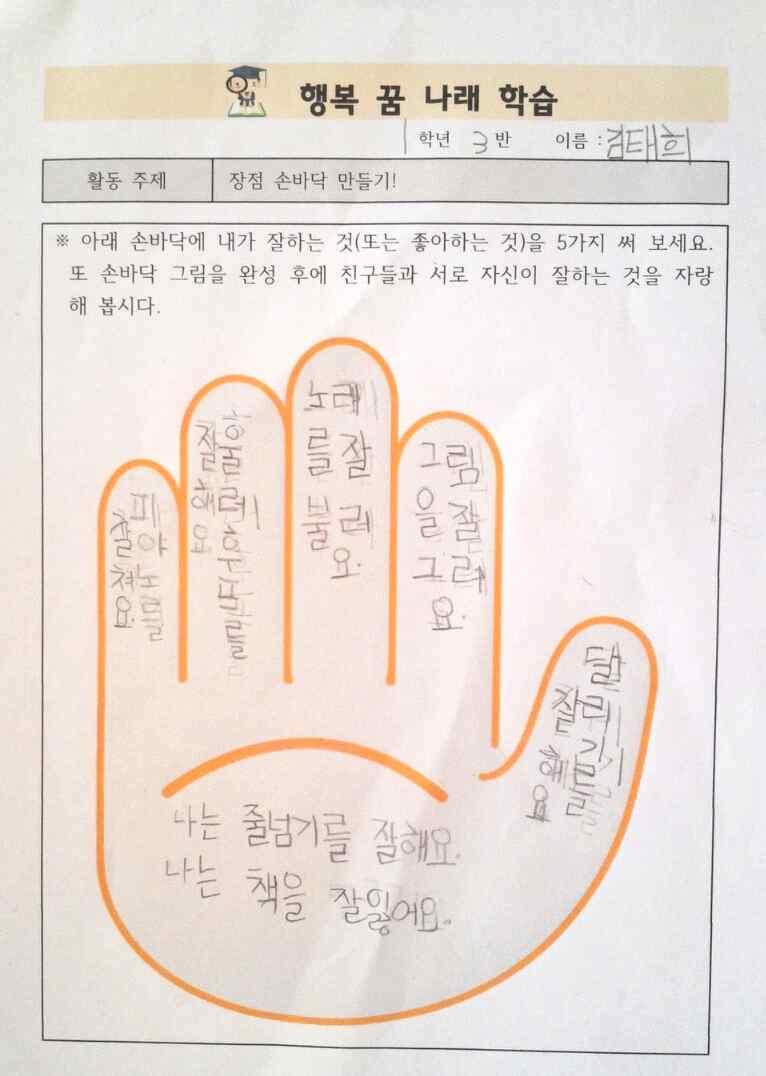 행복 꿈 나래 학습
1 학년 3 반 이름 : 김태희
활동 주제 장점 손바닥 만들기!
※ 아래 손바닥에 내가 잘하는 것(또는 좋아하는 것)을 5가지 써 보세요.
또 손바닥 그림을 완성 후에 친구들과 서로 자신이 잘하는 것을 자랑
해 봅시다.
피아노를
잘쳐요.
훌레후프를
잘해요
노래
를잘
불러
요.
그림
을잘
그려
요.
달레기를
잘해요
나는 줄넘기를 잘해요.
나는 책을 잘잃어요.